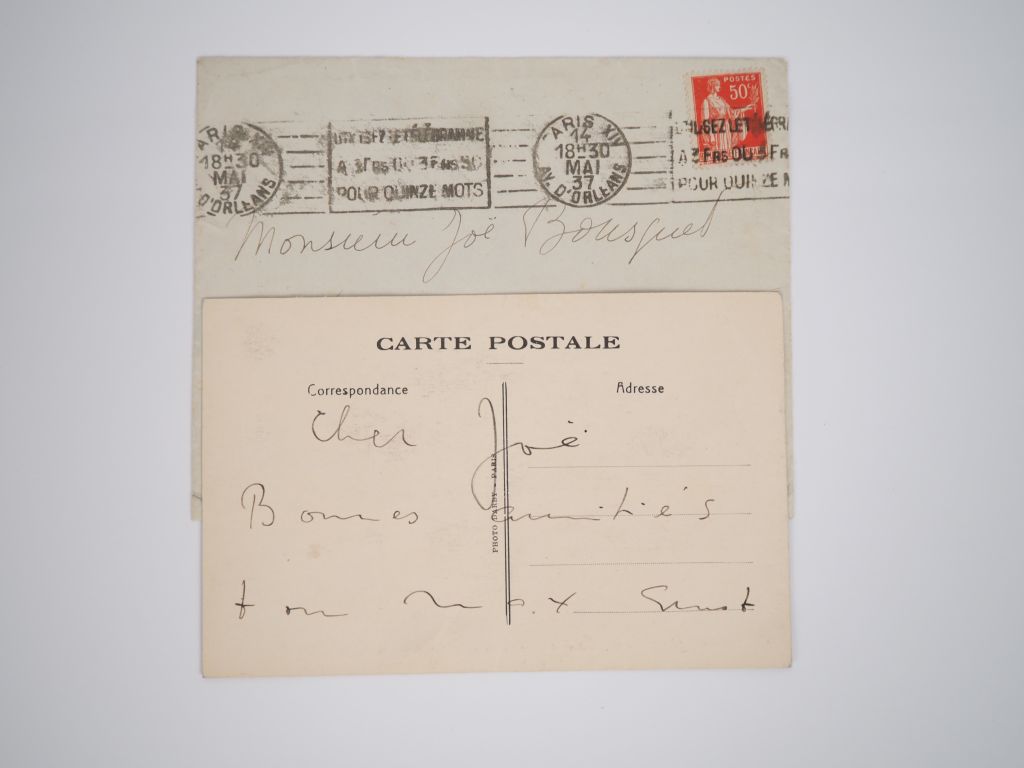 POSTES
50c
PARIS XIV
14
18H30
MAI
37
AV. D'ORLEANS
UTILISEZ LE TÉLÉGRAMME
A 3 FRS OU 3 FRS 50
POUR QUINZE MOTS
PARIS XIV
14
18H30
MAI
37
AV. D'ORLEANS
UTILISEZ LE TÉLÉGRA
A 3 FRS OU 3 FR
POUR QUINZE M
Monsieur Joë Bousquet
CARTE POSTALE
Correspondance
Adresse
Cher Joë
Bonnes amitiés
ton Max Ernst
PHOTO D'ARBY - PARIS